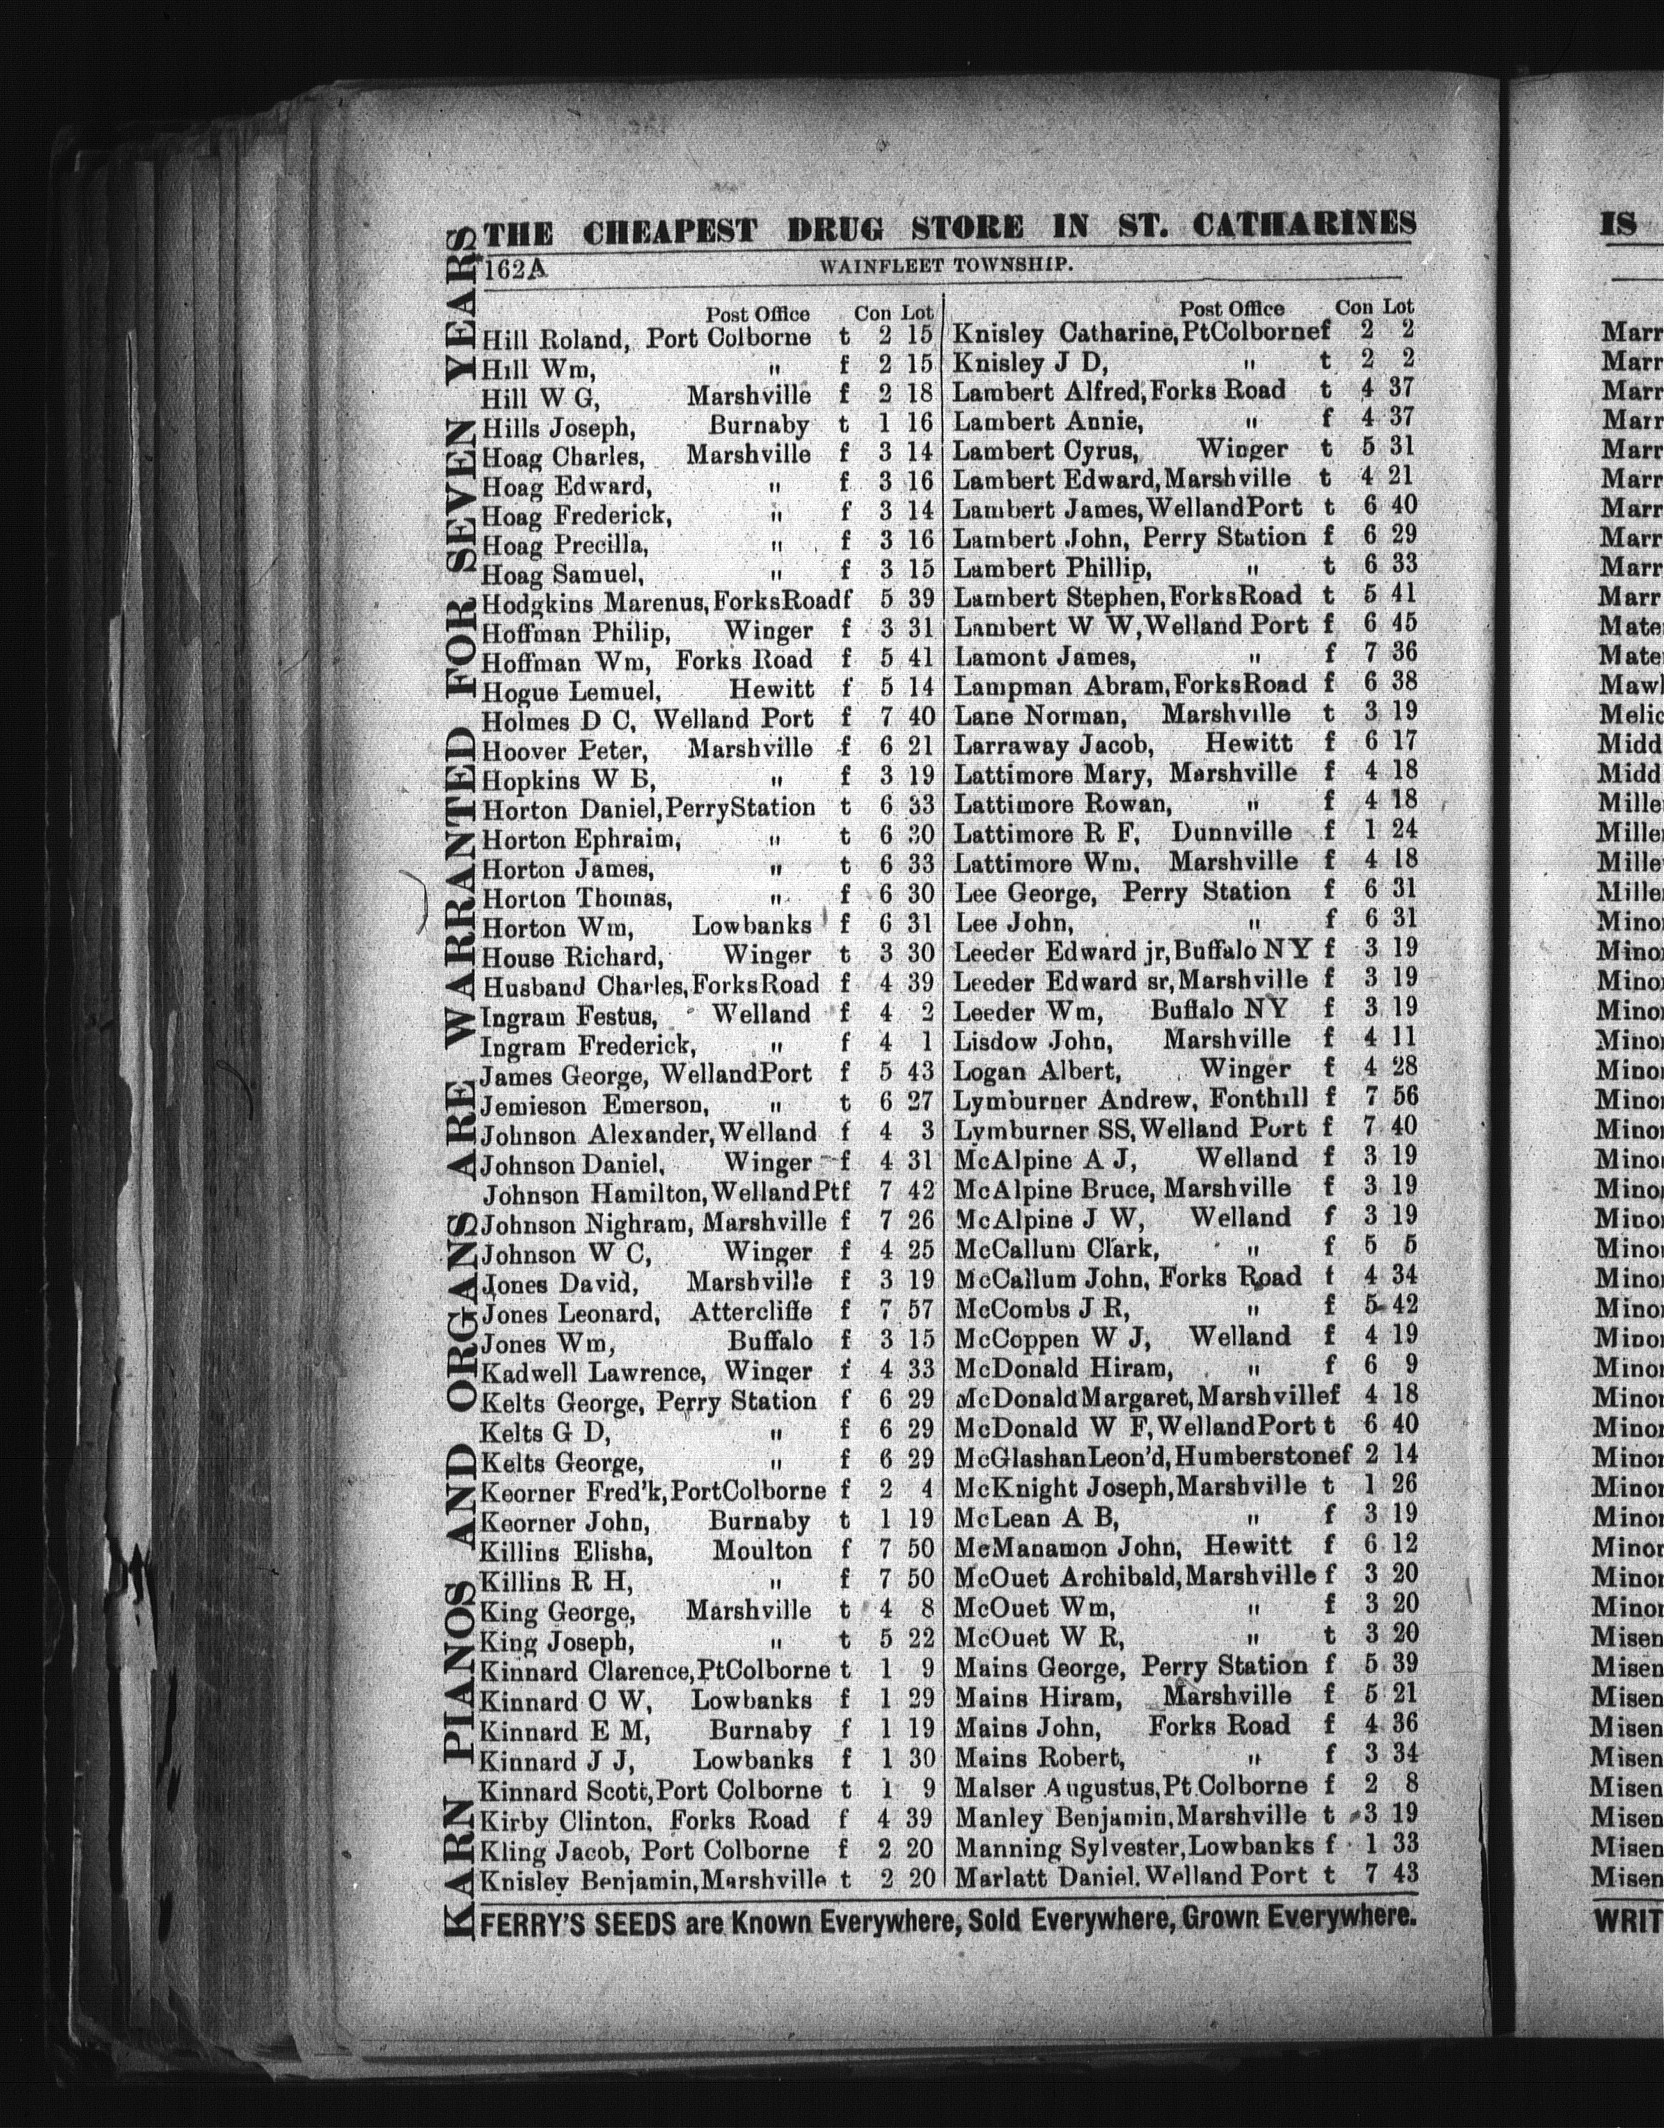 THE CHEAPEST DRUG STORE IN ST. CATHARINES
162A WAINFLEET TOWNSHIP.
KARN PIANOS AND ORGANS ARE WARRANTED FOR SEVEN YEARS
Post Office Con Lot
Hill Roland, Port Colborne t 2 15
Hill Wm, " f 2 15
Hill W G, Marshville f 2 18
Hills Joseph, Burnaby t 1 16
Hoag Charles, Marshville f 3 14
Hoag Edward, " f 3 16
Hoag Frederick, " f 3 14
Hoag Precilla, " f 3 16
Hoag Samuel, " f 3 15
Hodgkins Marenus, ForksRoadf 5 39
Hoffman Philip, Winger f 3 31
Hoffman Wm, Forks Road f 5 41
Hogue Lemuel, Hewitt f 5 14
Holmes D C, Welland Port f 7 40
Hoover Peter, Marshville f 6 21
Hopkins W B, " f 3 19
Horton Daniel, PerryStation t 6 33
Horton Ephraim, " t 6 30
Horton James, " t 6 33
Horton Thomas, " f 6 30
Horton Wm, Lowbanks f 6 31
House Richard, Winger t 3 30
Husband Charles, ForksRoad f 4 39
Ingram Festus, Welland f 4 2
Ingram Frederick, " f 4 1
James George, WellandPort f 5 43
Jemieson Emerson, " t 6 27
Johnson Alexander, Welland f 4 3
Johnson Daniel, Winger f 4 31
Johnson Hamilton, WellandPtf 7 42
Johnson Nighram, Marshville f 7 26
Johnson W C, Winger f 4 25
Jones David, Marshville f 3 19
Jones Leonard, Attercliffe f 7 57
Jones Wm, Buffalo f 3 15
Kadwell Lawrence, Winger f 4 33
Kelts George, Perry Station f 6 29
Kelts G D, " f 6 29
Kelts George, " f 6 29
Keorner Fred'k, PortColborne f 2 4
Keorner John, Burnaby t 1 19
Killins Elisha, Moulton f 7 50
Killins R H, " f 7 50
King George, Marshville t 4 8
King Joseph, " t 5 22
Kinnard Clarence, PtColborne t 1 9
Kinnard O W, Lowbanks f 1 29
Kinnard E M, Burnaby f 1 19
Kinnard J J, Lowbanks f 1 30
Kinnard Scott, Port Colborne t 1 9
Kirby Clinton, Forks Road f 4 39
Kling Jacob, Port Colborne f 2 20
Knisley Benjamin, Marshville t 2 20
Post Office Con Lot
Knisley Catharine, PtColbornef 2 2
Knisley J D, " t 2 2
Lambert Alfred, Forks Road t 4 37
Lambert Annie, " f 4 37
Lambert Cyrus, Winger t 5 31
Lambert Edward, Marshville t 4 21
Lambert James, WellandPort t 6 40
Lambert John, Perry Station f 6 29
Lambert Phillip, " t 6 33
Lambert Stephen, ForksRoad t 5 41
Lambert W W, Welland Port f 6 45
Lamont James, " f 7 36
Lampman Abram, ForksRoad f 6 38
Lane Norman, Marshville t 3 19
Larraway Jacob, Hewitt f 6 17
Lattimore Mary, Marshville f 4 18
Lattimore Rowan, " f 4 18
Lattimore R F, Dunnville f 1 24
Lattimore Wm, Marshville f 4 18
Lee George, Perry Station f 6 31
Lee John, " f 6 31
Leeder Edward jr, Buffalo N Y f 3 19
Leeder Edward sr, Marshville f 3 19
Leeder Wm, Buffalo N Y f 3 19
Lisdow John, Marshville f 4 11
Logan Albert, Winger f 4 28
Lymburner Andrew, Fonthill f 7 56
Lymburner SS, Welland Port f 7 40
McAlpine A J, Welland f 3 19
McAlpine Bruce, Marshville f 3 19
McAlpine J W, Welland f 3 19
McCallum Clark, " f 5 5
McCallum John, Forks Road t 4 34
McCombs J R, " f 5 42
McCoppen W J, Welland f 4 19
McDonald Hiram, " f 6 9
McDonaldMargaret, Marshvillef 4 18
McDonald W F, WellandPort t 6 40
McGlashanLeon'd, Humberstonef 2 14
McKnight Joseph, Marshville t 1 26
McLean A B, " f 3 19
McManamon John, Hewitt f 6 12
McOuet Archibald, Marshville f 3 20
McOuet Wm, " f 3 20
McOuet W R, " t 3 20
Mains George, Perry Station f 5 39
Mains Hiram, Marshville f 5 21
Mains John, Forks Road f 4 36
Mains Robert, " f 3 34
Malser Augustus, Pt Colborne f 2 8
Manley Benjamin, Marshville t 3 19
Manning Sylvester, Lowbanks f 1 33
Marlatt Daniel, Welland Port t 7 43
FERRY'S SEEDS are Known Everywhere, Sold Everywhere, Grown Everywhere.
IS
Marr
Marr
Marr
Marr
Marr
Marr
Marr
Marr
Marr
Marr
Mate
Mate
Mawl
Melic
Midd
Midd
Mille
Mille
Mille
Mille
Minor
Minor
Minor
Minor
Minor
Minor
Minor
Minor
Minor
Minor
Minor
Minor
Minor
Minor
Minor
Minor
Minor
Minor
Minor
Minor
Minor
Minor
Minor
Minor
Misen
Misen
Misen
Misen
Misen
Misen
Misen
Misen
Misen
WRIT